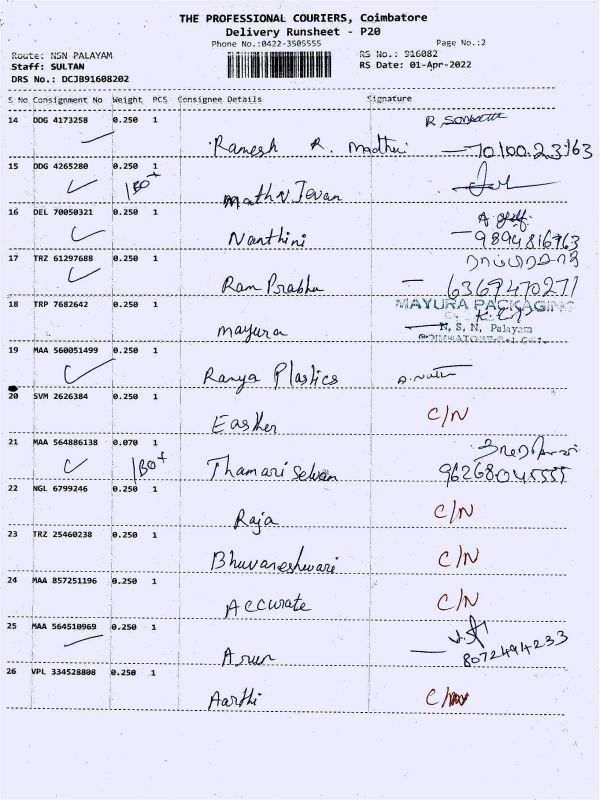 THE PROFESSIONAL COURIERS, Coimbatore
Delivery Runsheet - P20
Phone No.:0422-3505555
Page No.:2
Route: NSN PALAYAM
RS No.: 916082
Staff: SULTAN
RS Date: 01-Apr-2022
DRS No.: DCJB91608202
S No Consignment No Weight PCS Consignee Details Signature
14 DDG 4173258 0.250 1
Ramesh R. Madhu
15 DDG 4265280 0.250 1
180+
16 DEL 70050321 0.250 1
Nanthini
9894816763
17 TRZ 61297688 0.250 1
Ram Prabhu
6369470271
18 TRP 7682642 0.250 1
MAYURA PACKAGING
mayura
N. S. N. Palayam
19 MAA 560051499 0.250 1
Ranya Plastics
20 SVM 2626384 0.250 1
C/N
Easther
21 MAA 564886138 0.070 1
180+
Thamari Selvan
22 NGL 6799246 0.250 1
Raja
C/N
23 TRZ 25460238 0.250 1
Bhuvaneshwari
C/N
24 MAA 857251196 0.250 1
Accurate
C/N
25 MAA 564510969 0.250 1
Arun
8072494233
26 VPL 334528808 0.250 1
Aarthi